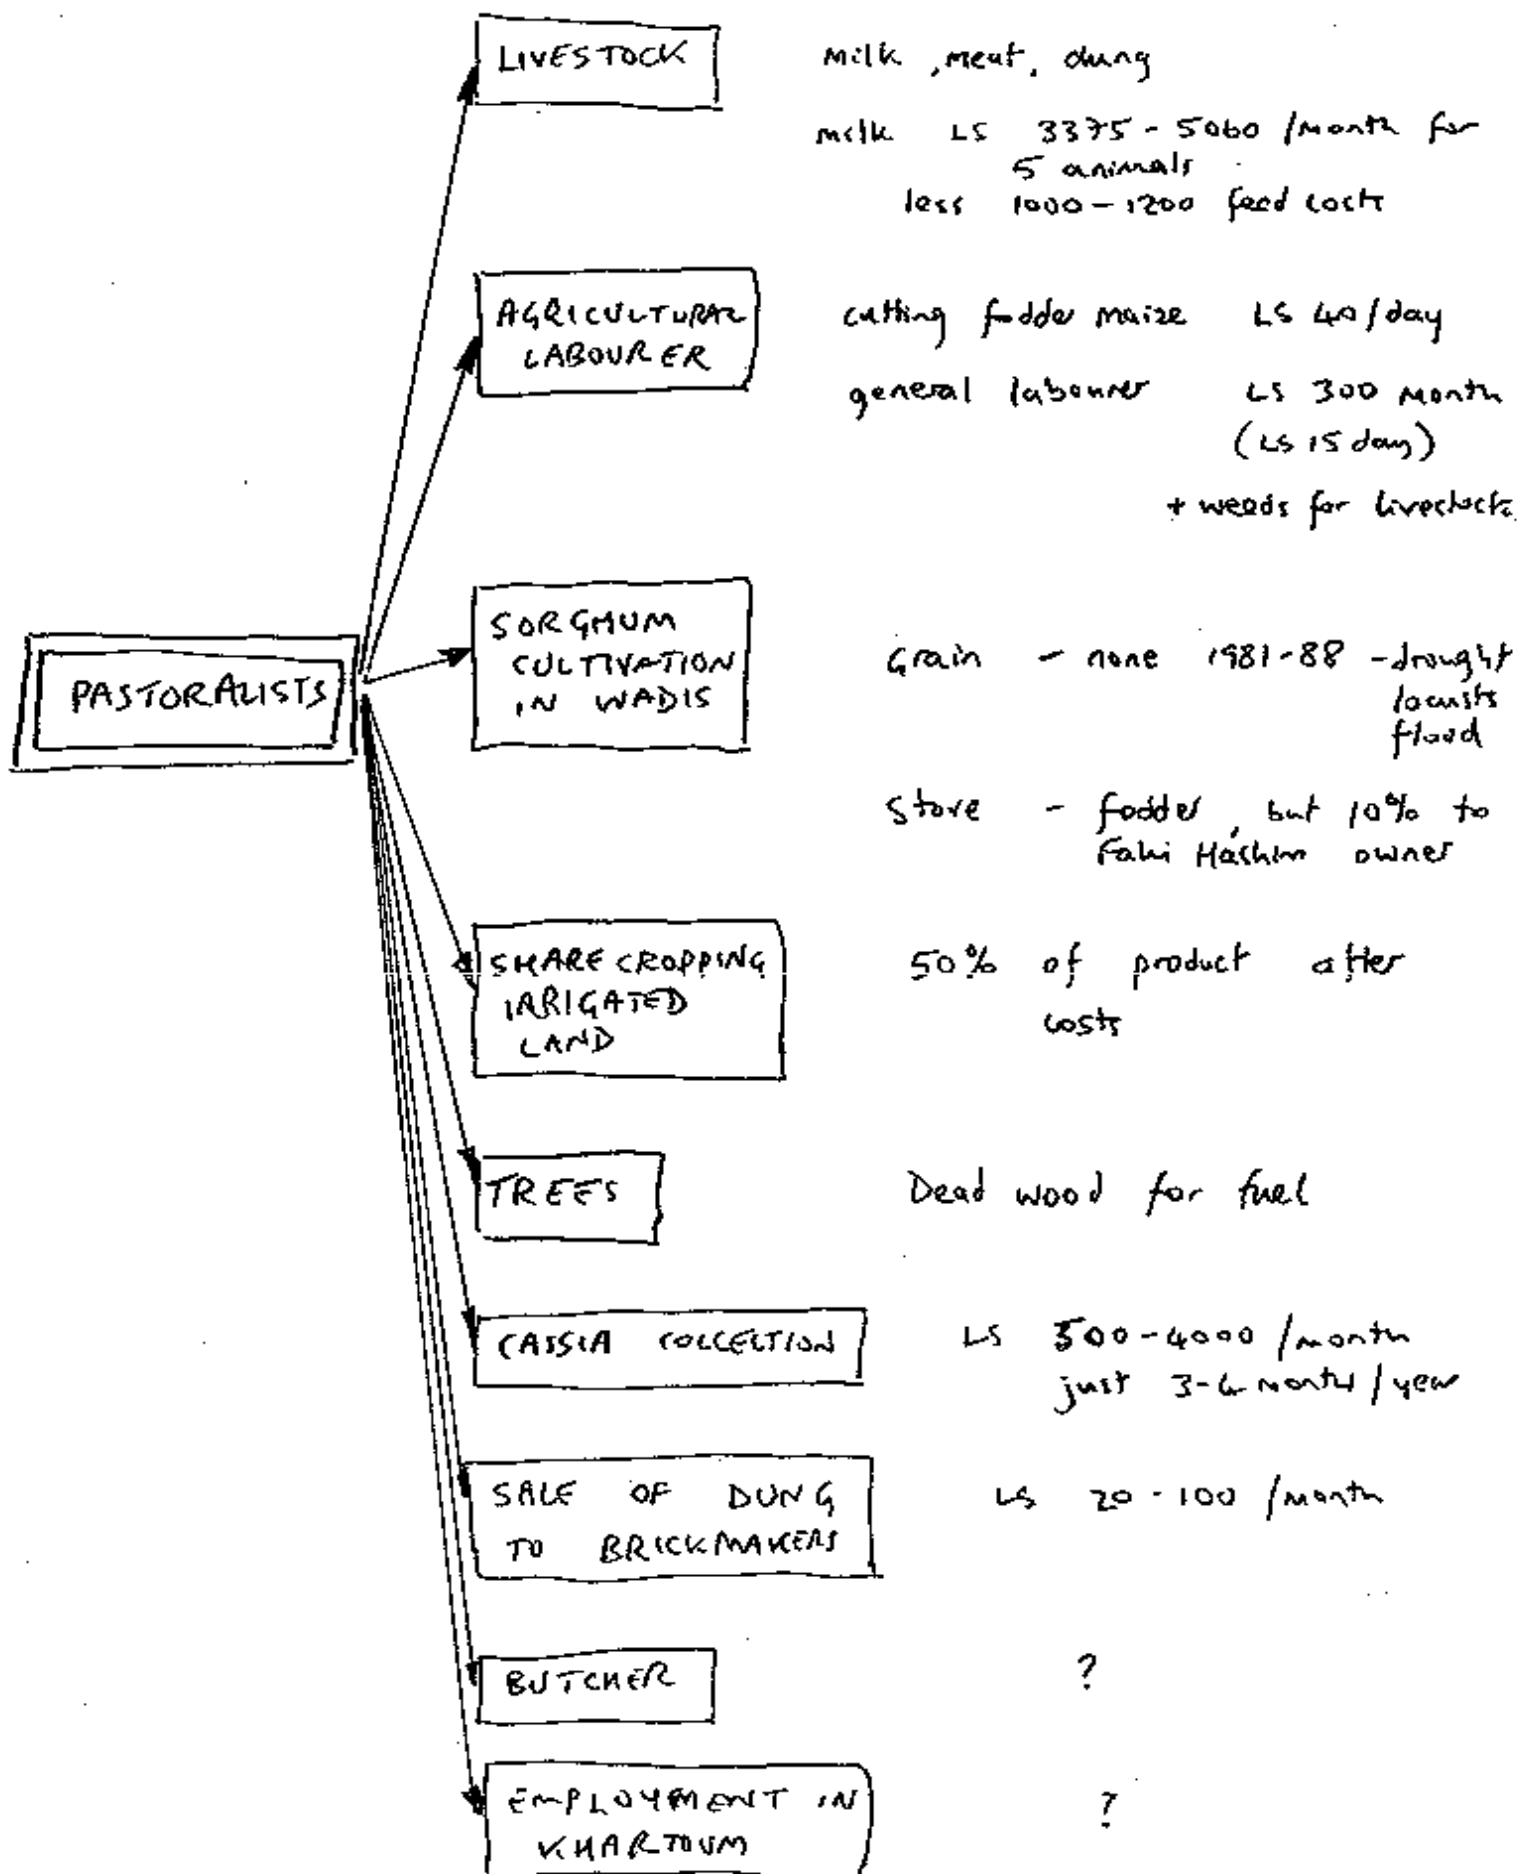 LIVESTOCK
milk, meat, dung
milk LS 3375-5060 /month for
5 animals
less 1000-1200 feed costs
AGRICULTURAL
LABOURER
cutting fodder maize LS 40/day
general labourer LS 300 month
(LS 15 day)
+ weeds for livestock
PASTORALISTS
SORGHUM
CULTIVATION
IN WADIS
Grain - none 1981-88 - drought
locusts
flood
Stove - fodder, but 10% to
Faki Hashim owner
SHARECROPPING
IRRIGATED
LAND
50% of product after
costs
TREES
Dead wood for fuel
CASSIA COLLECTION
LS 500-4000 /month
just 3-4 months/year
SALE OF DUNG
TO BRICKMAKERS
LS 20-100 /month
BUTCHER
?
EMPLOYMENT IN
KHARTOUM
?